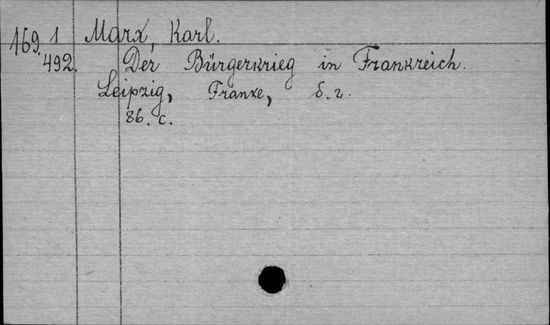 169.1 Marx, Karl.
492. Der Bürgerkrieg in Frankreich.
Leipzig, Franke, б. г.
86. с.